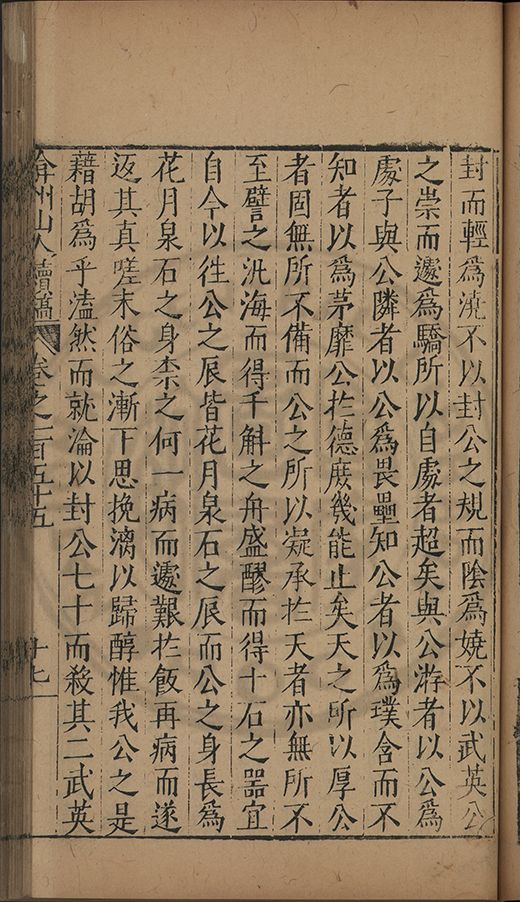 封而輕為澆不以封公之規而陰為嬈不以武英公
之崇而遽為驕所以自處者超矣與公游者以公為
處子與公隣者以公為畏壘知公者以為璞含而不
知者以為茅靡公於德庶幾能止矣天之所以厚公
者固無所不備而公之所以凝承於天者亦無所不
至譬之汎海而得千斛之舟盛醪而得十石之器宜
自今以往公之辰皆花月泉石之辰而公之身長為
花月泉石之身柰之何一病而遽艱於飯再病而遂
返其真嗟末俗之漸下思挽漓以歸醇惟我公之是
藉胡為乎溘然而就淪以封公七十而殺其二武英
弇州山人續稿 卷之一百五十五 十七